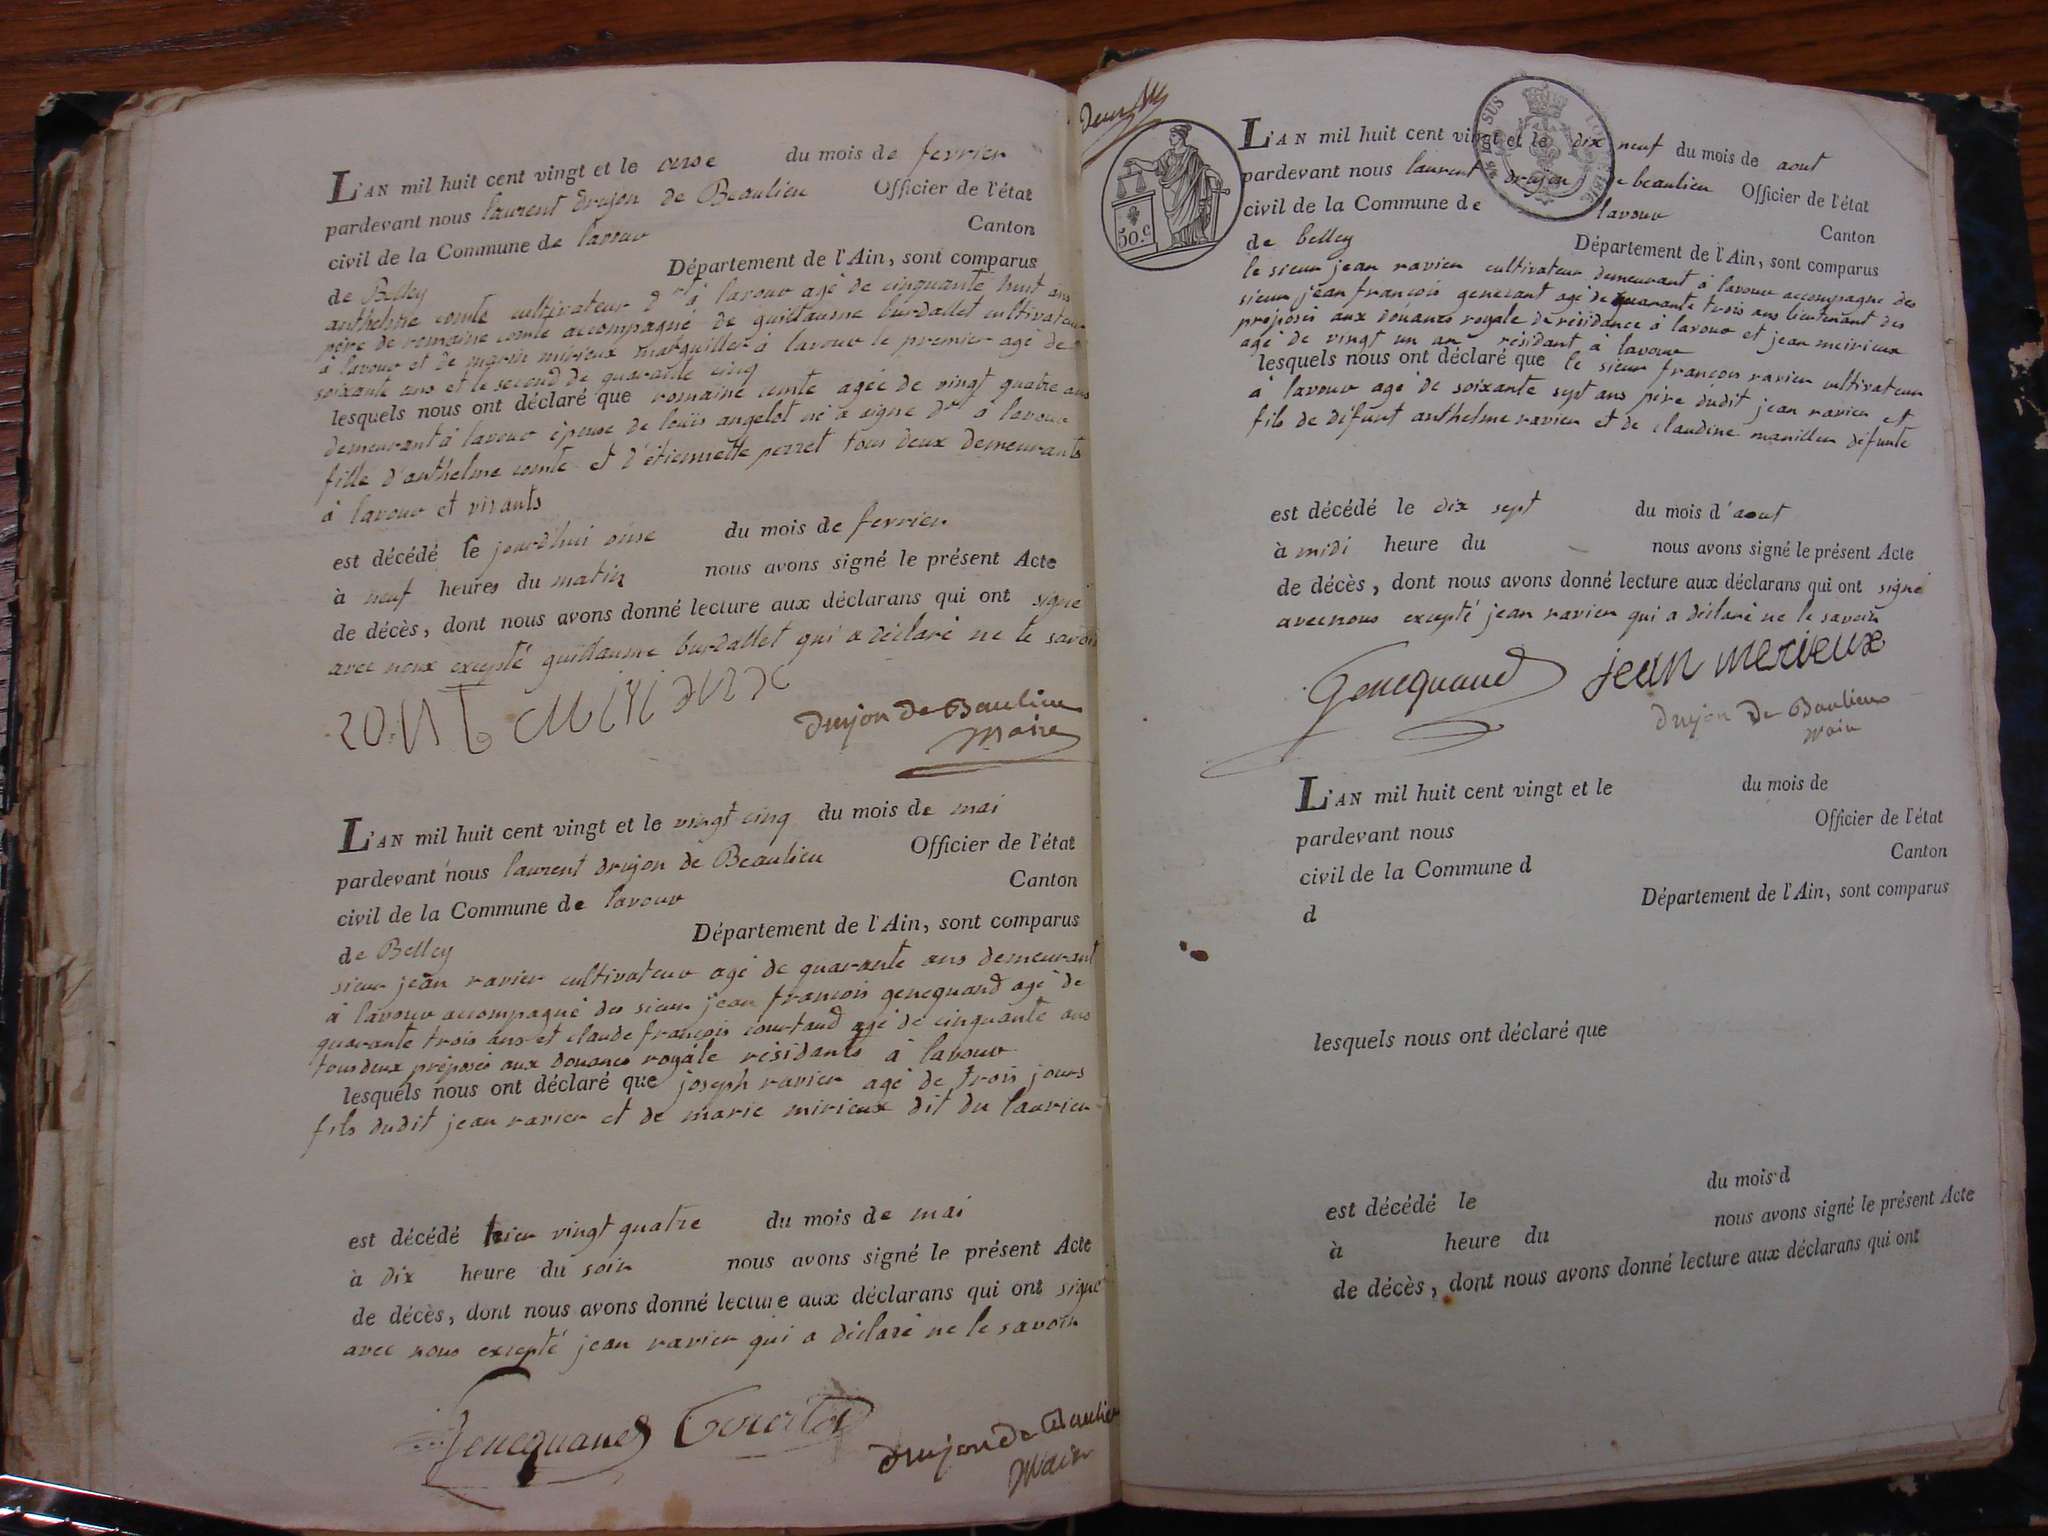 L'AN mil huit cent vingt et le onse du mois de fevrier
pardevant nous laurent drujon de Beaulieu Officier de l'état
civil de la Commune de lavour Canton
de Belley Département de l'Ain, sont comparus
anthelme comte cultivateur d.rt à lavour agé de cinquante huit ans
père de romaine comte accompagné de guillaume burdallet cultivateur
à lavour et de marin mirieux marguillier à lavour le premier agé de
soixante ans et le second de quarante cinq
lesquels nous ont déclaré que romaine comte agée de vingt quatre ans
demeurant à lavour épouse de louis angelot né à aigne d.rt à lavour
fille d'anthelme comte et d'étiennette perret tous deux demeurants
à lavour et vivants
est décédé le jourdhui onse du mois de fevrier
à neuf heures du matin nous avons signé le présent Acte
de décès, dont nous avons donné lecture aux déclarans qui ont signé
avec nous excepté guillaume burdallet qui a déclaré ne le savoir
drujon de Baulieu
Maire
L'AN mil huit cent vingt et le vingt cinq du mois de mai
pardevant nous laurent drujon de Beaulieu Officier de l'état
civil de la Commune de lavour Canton
de Belley Département de l'Ain, sont comparus
sieur jean ravier cultivateur agé de quarante ans demeurant
à lavour accompagné des sieur jean françois genequand agé de
quarante trois ans et claude françois courtaud agé de cinquante ans
tous deux préposés aux douanes royale résidants à lavour
lesquels nous ont déclaré que joseph ravier agé de trois jours
fils dudit jean ravier et de marie mirieux dit du laurier
est décédé hier vingt quatre du mois de mai
à dix heure du soir nous avons signé le présent Acte
de décès, dont nous avons donné lecture aux déclarans qui ont signé
avec nous excepté jean ravier qui a déclaré ne le savoir
Genequand
drujon de Baulieu
Maire
50.C
L'AN mil huit cent vingt et le dix neuf du mois de aout
pardevant nous laurent drujon de beaulieu Officier de l'état
civil de la Commune de lavour Canton
de belley Département de l'Ain, sont comparus
le sieur jean ravier cultivateur demeurant à lavour accompagné des
sieur jean françois genecant agé de quarante trois ans lieutenant des
préposés aux douanes royale de résidance à lavour et jean meirieux
agé de vingt un an résidant à lavour
lesquels nous ont déclaré que le sieur françois ravier cultivateur
à lavour agé de soixante sept ans père dudit jean ravier et
fils de défunt anthelme ravier et de claudine manillier défunte
est décédé le dix sept du mois d'aout
à midi heure du nous avons signé le présent Acte
de décès, dont nous avons donné lecture aux déclarans qui ont signé
avec nous excepté jean ravier qui a déclaré ne le savoir
Genequand jean merieux
drujon de Baulieux
Maire
L'AN mil huit cent vingt et le du mois de
pardevant nous Officier de l'état
civil de la Commune d Canton
d Département de l'Ain, sont comparus
lesquels nous ont déclaré que
est décédé le du mois d
à heure du nous avons signé le présent Acte
de décès, dont nous avons donné lecture aux déclarans qui ont